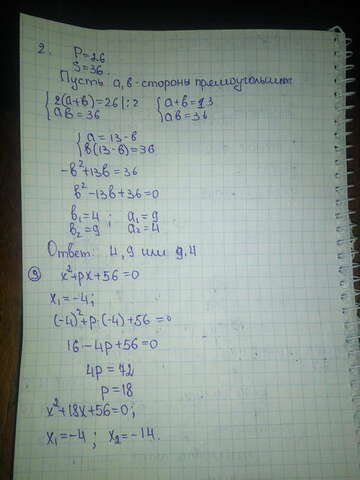 2.
P=26
S=36.
Пусть а,в-стороны прямоугольник
{ 2(а+в)=26|:2   { а+в=13
{ ав=36   { ав=36
{ а=13-в
{ в(13-в)=36
-в²+13в=36
в²-13в+36=0
в₁=4 ; а₁=9
в₂=9 ; а₂=4
Ответ: 4,9 или 9,4
③ x²+px+56=0
x₁=-4;
(-4)²+p(-4)+56=0
16-4p+56=0
4p=72
p=18
x²+18x+56=0;
x₁=-4 ; x₂=-14.